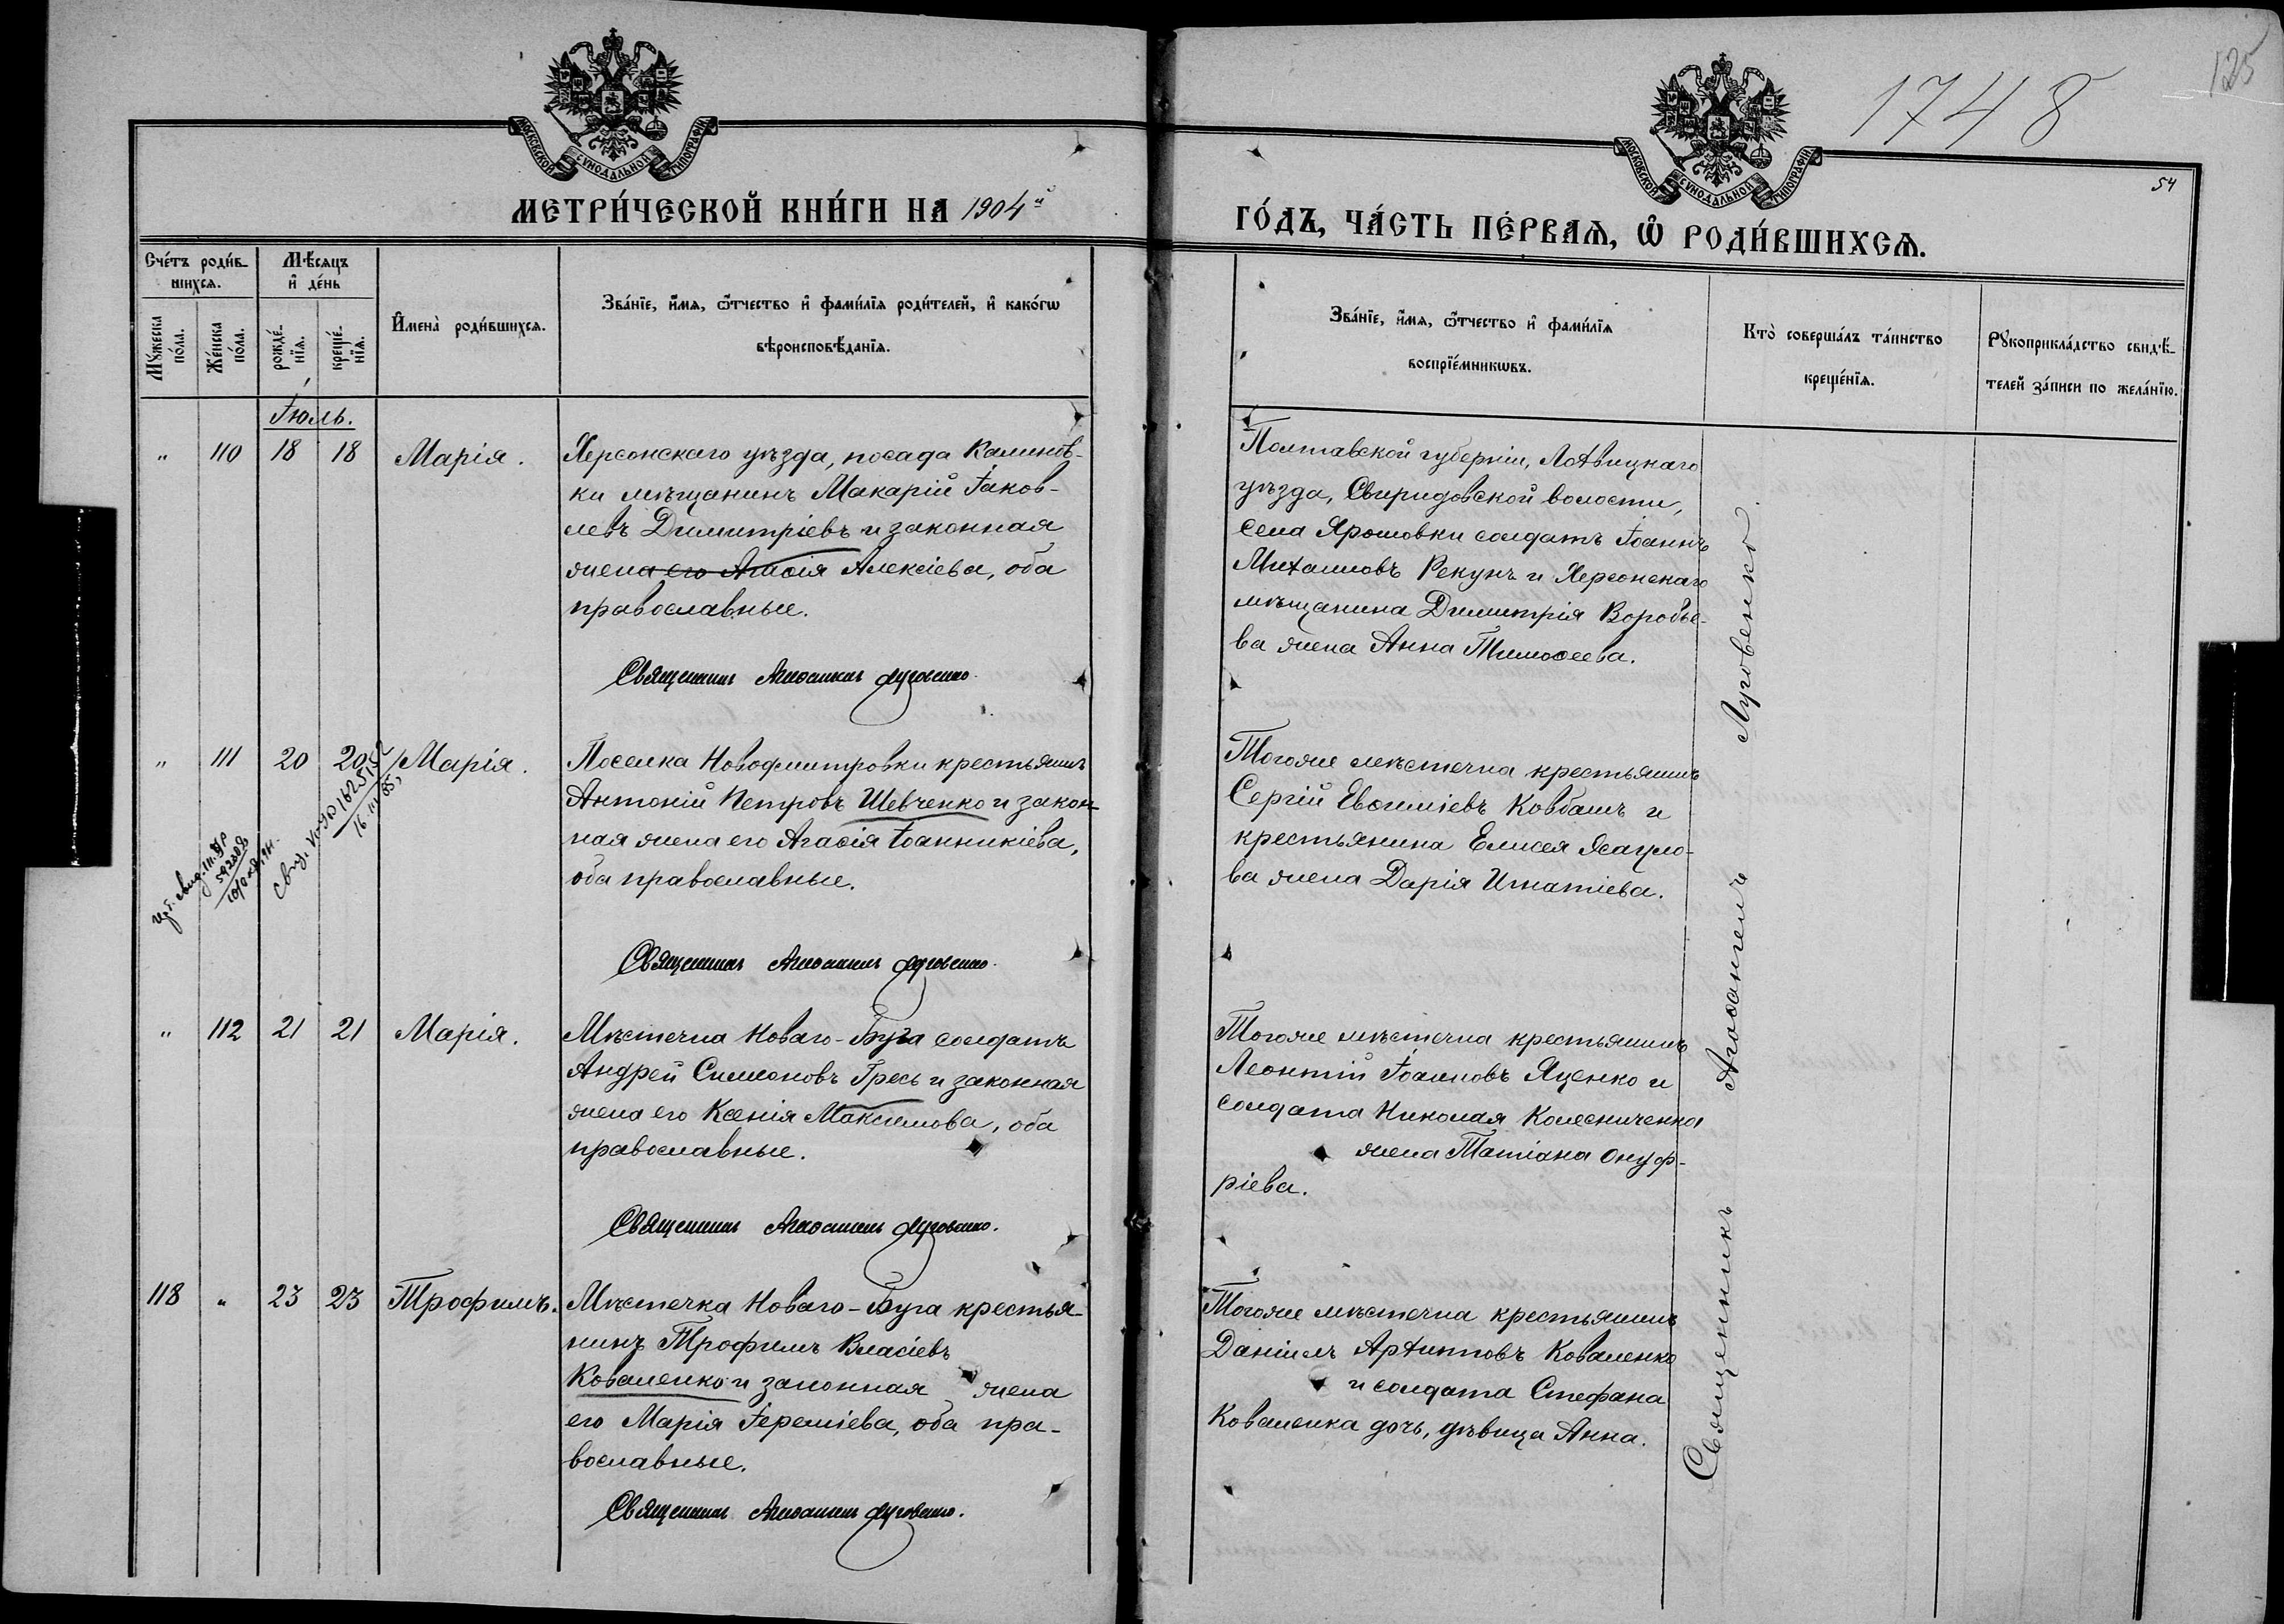 1748
125
54
МОСКОВСКОЙ СѴНОДАЛЬНОЙ ТИПОГРАФІИ
МОСКОВСКОЙ СѴНОДАЛЬНОЙ ТИПОГРАФІИ
МЕТРИ́ЧЕСКОЙ КНИ́ГИ НА 1904й
ГО́ДЪ, ЧА́СТЬ ПЕ́РВАЯ, Ѡ҆ РОДИ́ВШИХСѦ.
Сче́тъ роди́в-
шихсѧ.
Мѣ́сяцъ
и҆ де́нь
Мꙋ́жеска
по́ла.
Же́нска
по́ла.
рожде́-
нїѧ.
креще́-
нїѧ.
И҆мена̀ роди́вшихсѧ.
Зва́нїе, и҆́мѧ, ѻ҆́тчество и҆ фами́лїѧ роди́телей, и҆ како́гѡ
вѣроисповѣ́данїѧ.
Зва́нїе, и҆́мѧ, ѻ҆́тчество и҆ фами́лїѧ
воспрїе́мникѡвъ.
Кто̀ соверша́лъ та́инство
креще́нїѧ.
Рꙋкоприкла́дство свидѣ́-
телей за́писи по жела́нїю.
Іюль.
" 110 18 18 Марія.
Херсонскаго уѣзда, посада Калинов-
ки мѣщанинъ Макарій Іаков-
левъ Димитріевъ и законная
жена его Агаѳія Алексіева, оба
православные.
Священникъ Агаѳангелъ Луговенко.
Полтавской губерніи, Лохвицкаго
уѣзда, Свиридовской волости,
села Ярошовки солдатъ Іоаннъ
Михаиловъ Рекунъ и Херсонскаго
мѣщанина Димитрія Воробье-
ва жена Анна Тимоѳеева.
" 111 20 20 Марія.
Поселка Новодмитровки крестьянинъ
Антоній Петровъ Шевченко и закон-
ная жена его Агаѳія Іоанникіева,
оба православные.
Священникъ Агаѳангелъ Луговенко.
Тогоже мѣстечка крестьянинъ
Сергій Евѳиміевъ Ковбашъ и
крестьянина Елисея Ясауло-
ва жена Дарія Игнатіева.
" 112 21 21 Марія.
Мѣстечка Новаго-Буга солдатъ
Андрей Симеоновъ Гресь и законная
жена его Ксенія Максимова, оба
православные.
Священникъ Агаѳангелъ Луговенко.
Тогоже мѣстечка крестьянинъ
Леонтій Іоанновъ Яценко и
солдата Николая Колесниченка
жена Татіана Онуф-
ріева.
118 " 23 23 Трофимъ.
Мѣстечка Новаго-Буга крестья-
нинъ Трофимъ Власіевъ
Коваленко и законная жена
его Марія Іереміева, оба пра-
вославные.
Священникъ Агаѳангелъ Луговенко.
Тогоже мѣстечка крестьянинъ
Даніилъ Архипповъ Коваленко
и солдата Стефана
Коваленка дочь, дѣвица Анна.
Священникъ Агаѳангелъ Луговенко.